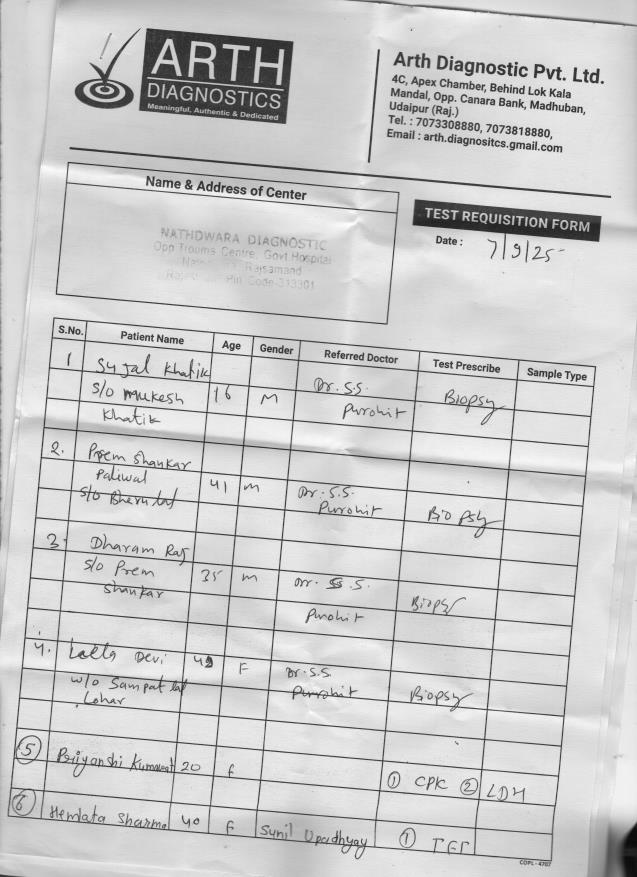 ARTH
DIAGNOSTICS
Meaningful, Authentic & Dedicated
Arth Diagnostic Pvt. Ltd.
4C, Apex Chamber, Behind Lok Kala
Mandal, Opp. Canara Bank, Madhuban,
Udaipur (Raj.)
Tel. : 7073308880, 7073818880,
Email : arth.diagnositcs.gmail.com
Name & Address of Center
NATHDWARA DIAGNOSTIC
Opp Trouma Centre, Govt Hospital
Rajsamand
Pin Code-313301
TEST REQUISITION FORM
Date : 7/9/25
S.No. Patient Name Age Gender Referred Doctor Test Prescribe Sample Type
1 Sujal Khatik Dr. S.S. Biopsy
S/o Mukesh 16 M Purohit
Khatik
2. Prem Shankar
Paliwal 41 M Dr. S.S.
S/o Bheru lal Purohit Biopsy
3. Dharam Raj
S/o Prem 35 M Dr. S.S.
Shankar Purohit Biopsy
4. Lalta Devi F Dr. S.S.
w/o Sampat lal Purohit Biopsy
Lohar
5 Priyanshi Kumawat 20 F ① CPK ② LDH
6 Hemlata Sharma 40 F Sunil Upadhyay ①
COPL - 4707